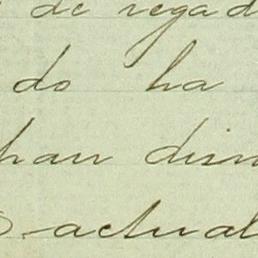 de regad
do ha
han dism
actual